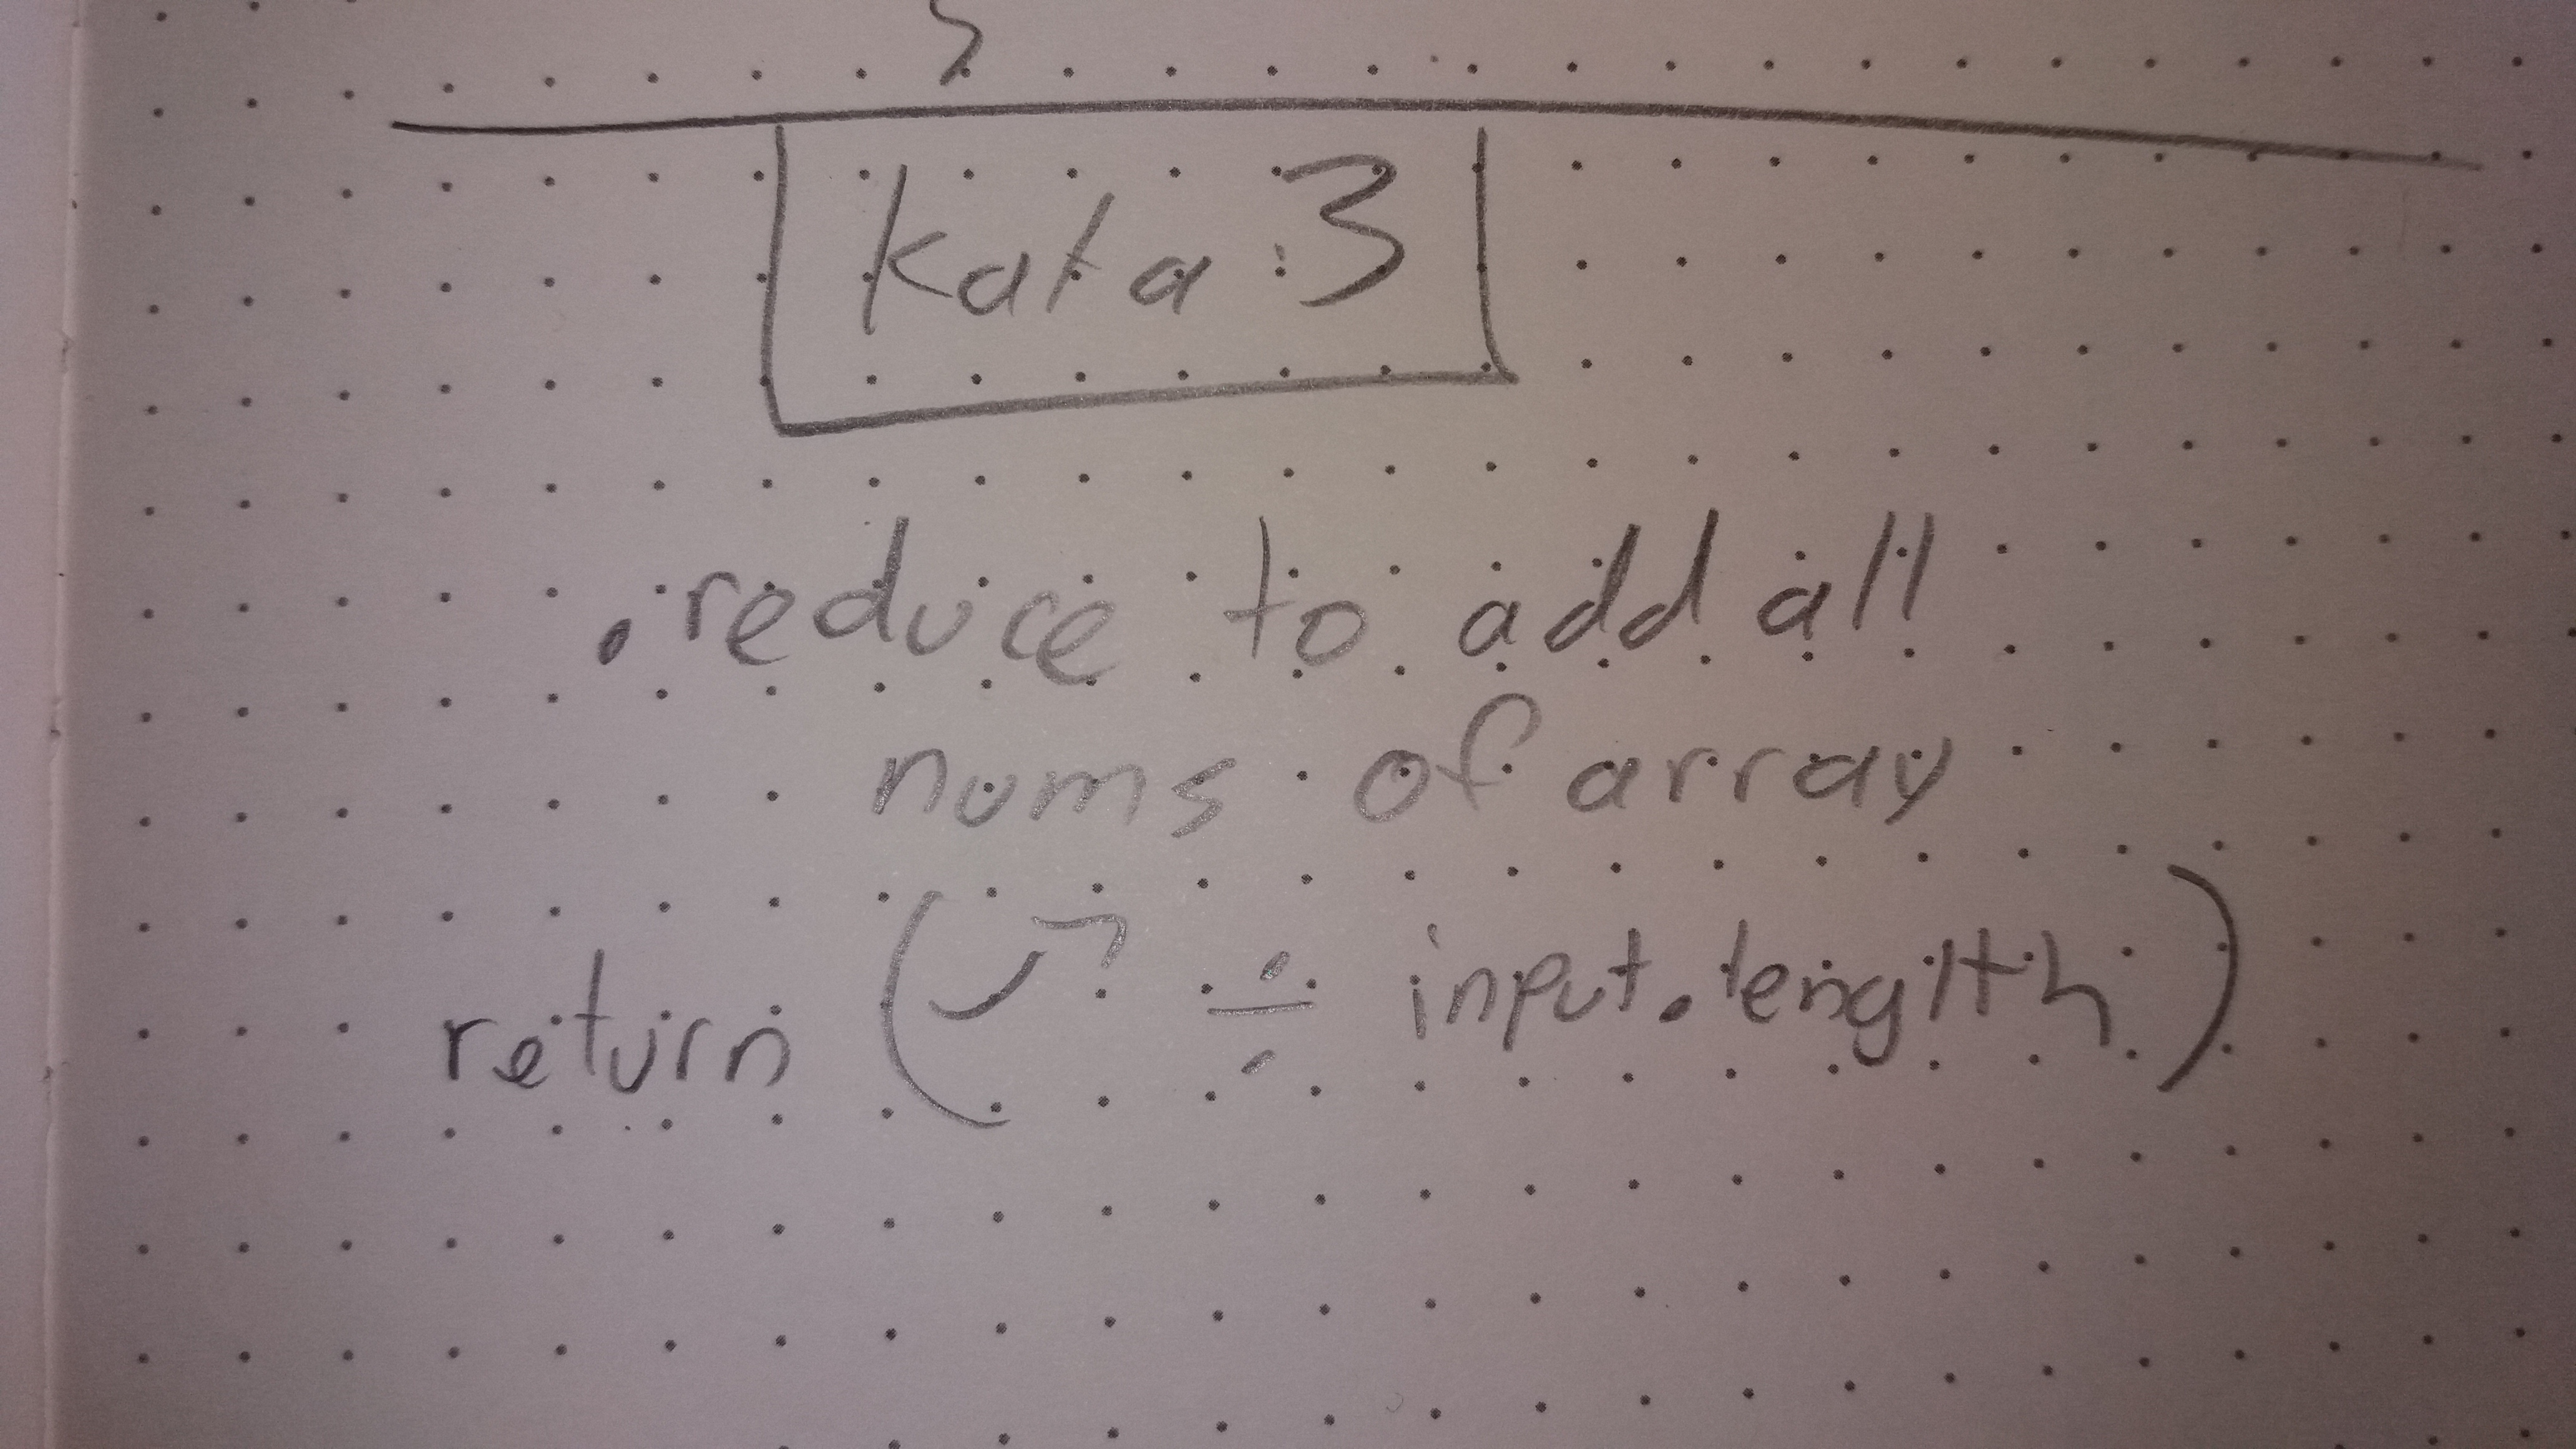 Kata:3
.reduce to add all
nums of array
return ( ÷ input.length)